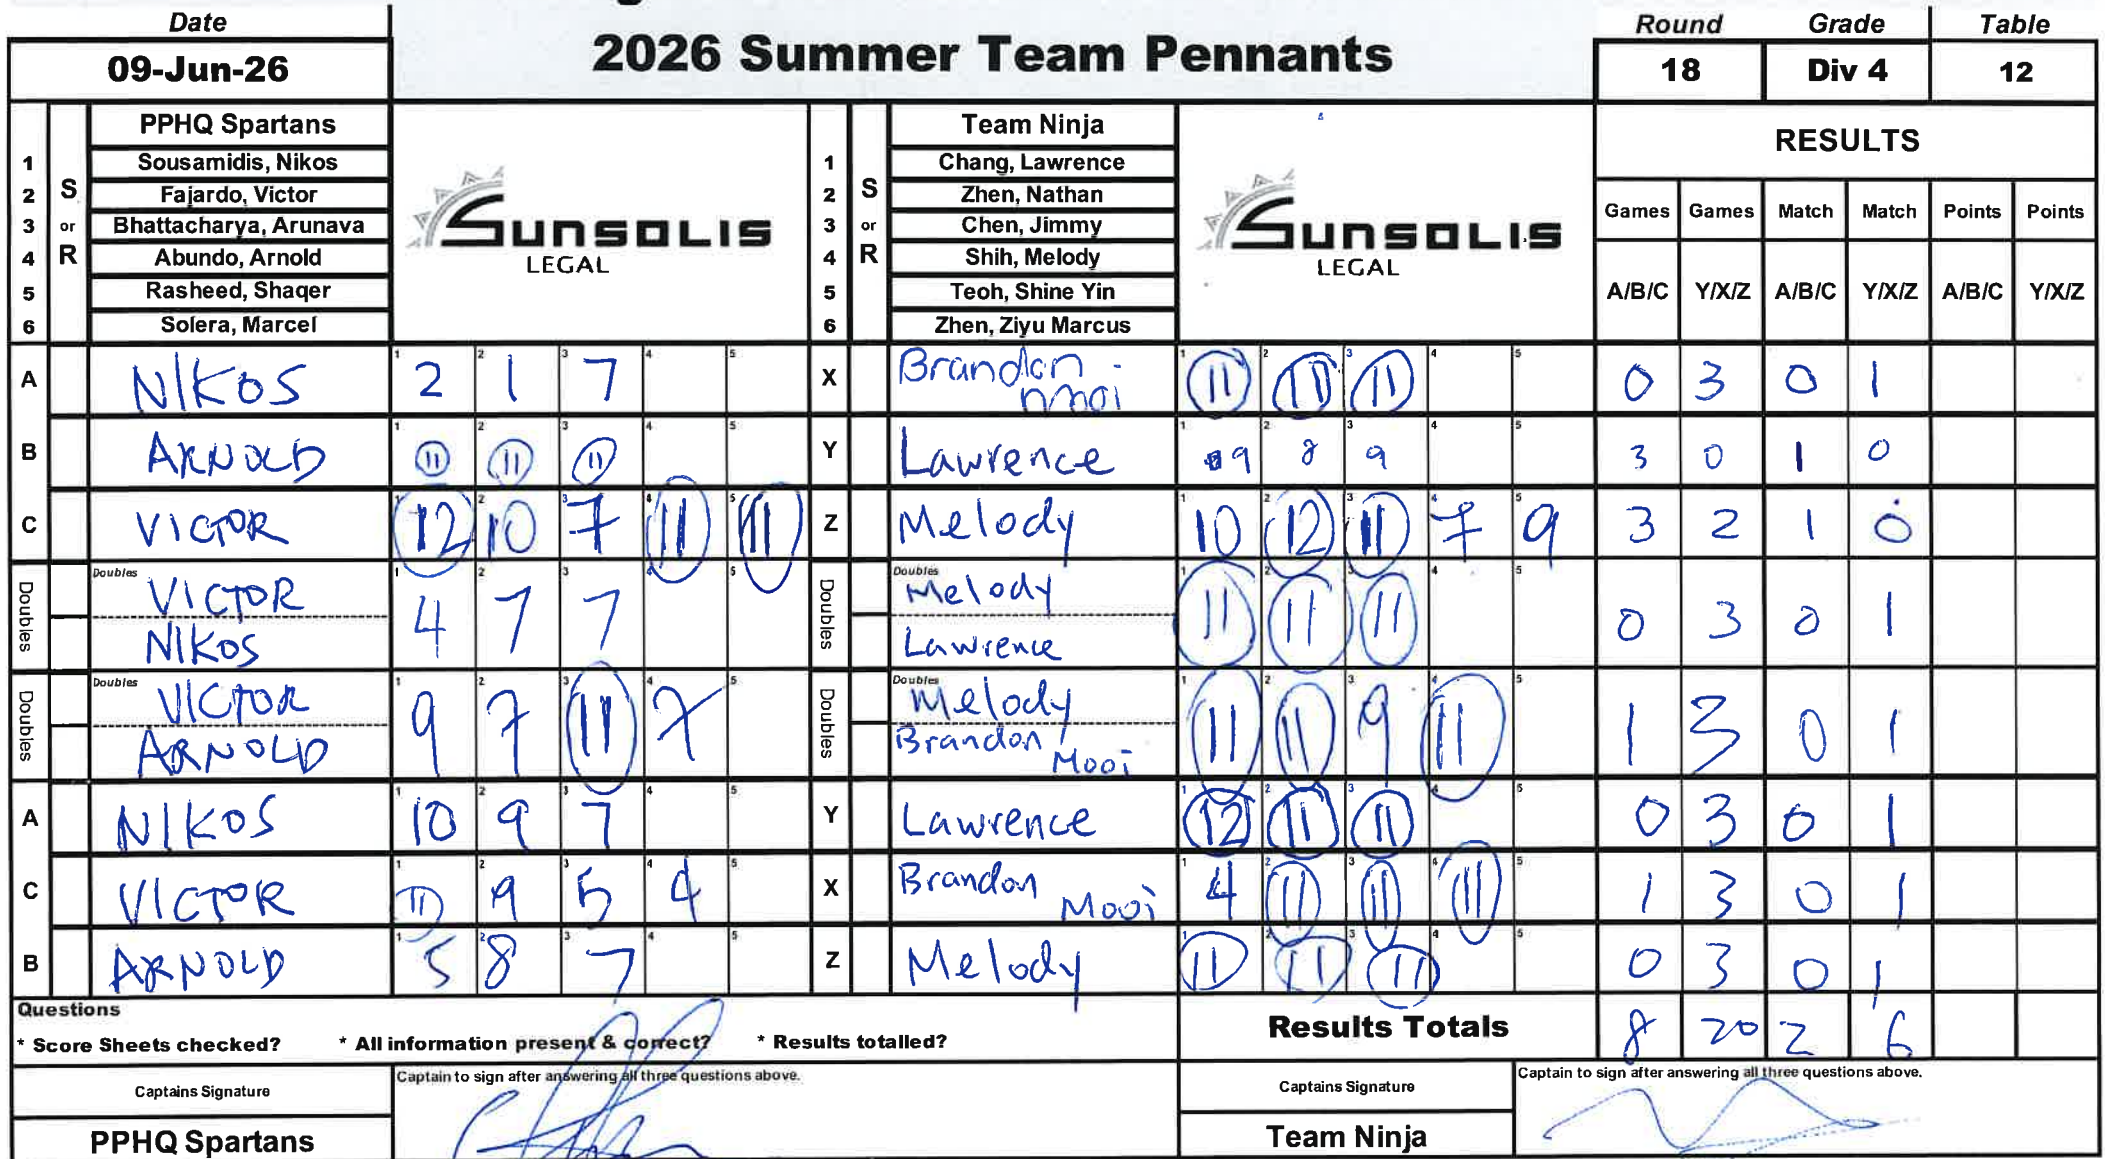 Date
09-Jun-26
2026 Summer Team Pennants
Round Grade Table
18 Div 4 12
PPHQ Spartans
1 Sousamidis, Nikos
2 Fajardo, Victor
3 Bhattacharya, Arunava
4 Abundo, Arnold
5 Rasheed, Shaqer
6 Solera, Marcel
S or R
SUNSOLIS
LEGAL
Team Ninja
1 Chang, Lawrence
2 Zhen, Nathan
3 Chen, Jimmy
4 Shih, Melody
5 Teoh, Shine Yin
6 Zhen, Ziyu Marcus
S or R
SUNSOLIS
LEGAL
RESULTS
Games Games Match Match Points Points
A/B/C Y/X/Z A/B/C Y/X/Z A/B/C Y/X/Z
A NIKOS 2 1 7 X Brandon 11 11 11 0 3 0 1
B ARNOLD 11 11 11 Y Lawrence 9 8 9 3 0 1 0
C VICTOR 12 10 7 11 11 Z Melody 10 12 11 7 9 3 2 1 0
Doubles Doubles VICTOR NIKOS 4 7 7 Doubles Doubles Melody Lawrence 11 11 11 0 3 0 1
Doubles Doubles VICTOR ARNOLD 9 7 11 7 Doubles Doubles Melody Brandon Mooi 11 11 9 11 1 3 0 1
A NIKOS 10 9 7 Y Lawrence 12 11 11 0 3 0 1
C VICTOR 11 9 5 4 X Brandon Mooi 4 11 11 11 1 3 0 1
B ARNOLD 5 8 7 Z Melody 11 11 11 0 3 0 1
Questions
* Score Sheets checked? * All information present & correct? * Results totalled?
Results Totals 8 20 2 6
Captains Signature
Captain to sign after answering all three questions above.
Captains Signature
Captain to sign after answering all three questions above.
PPHQ Spartans
Team Ninja